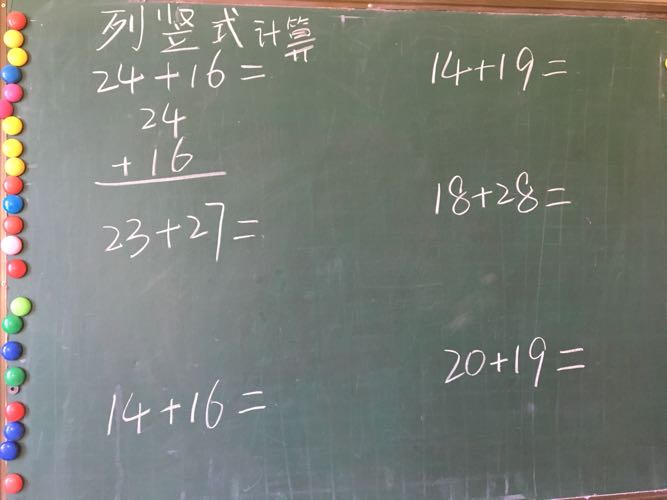 列竖式计算
24+16=
24
+16
23+27=
14+16=
14+19=
18+28=
20+19=